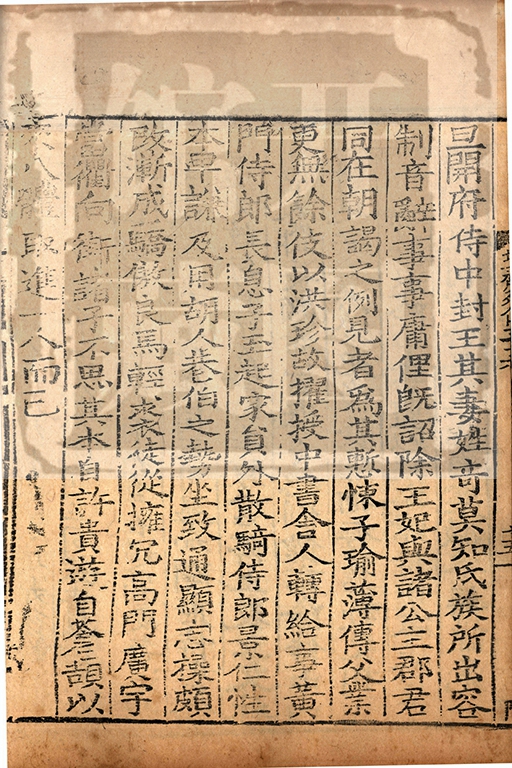 旦開府侍中封王其妻姓奇莫知氏族所出容
制音辭事事庸俚旣詔除王妃與諸公主郡君
同在朝謁之例見者爲其慙悚子瑜薄傳父業
更無餘伎以洪珍故擢授中書舍人轉給事黃
門侍郎長息子玉起家員外散騎侍郎景仁性
本卑謙及用胡人巷伯之勢坐致通顯志操頗
改漸成驕傲良馬輕裘徒從擁冗高門廣宇
當衢向街諸子不思其本自許貴遊自蒼頡以
來八體取進一人而已